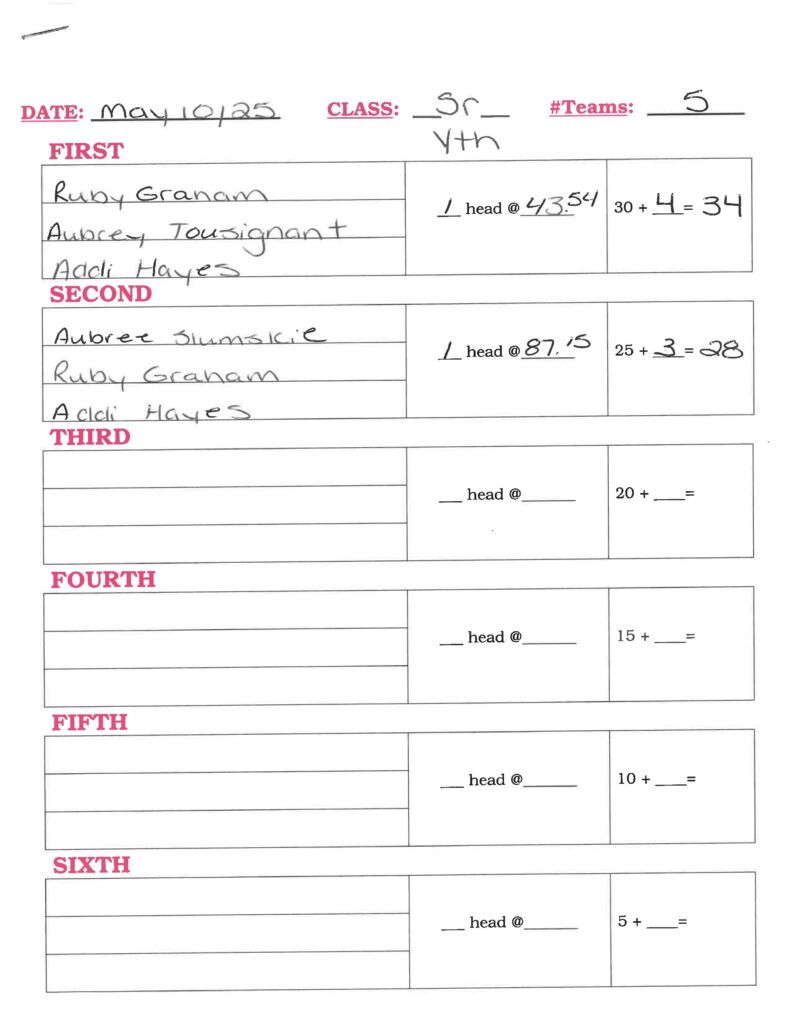 DATE: May 10/25 CLASS: Sr #Teams: 5
Yth
FIRST
Ruby Graham
Aubrey Tousignant
Addi Hayes
1 head @ 43.54
30 + 4 = 34
SECOND
Aubree Slumskie
Ruby Graham
Addi Hayes
1 head @ 87.15
25 + 3 = 28
THIRD
__ head @______
20 + ___=
FOURTH
__ head @______
15 + ___=
FIFTH
__ head @______
10 + ___=
SIXTH
__ head @______
5 + ___=